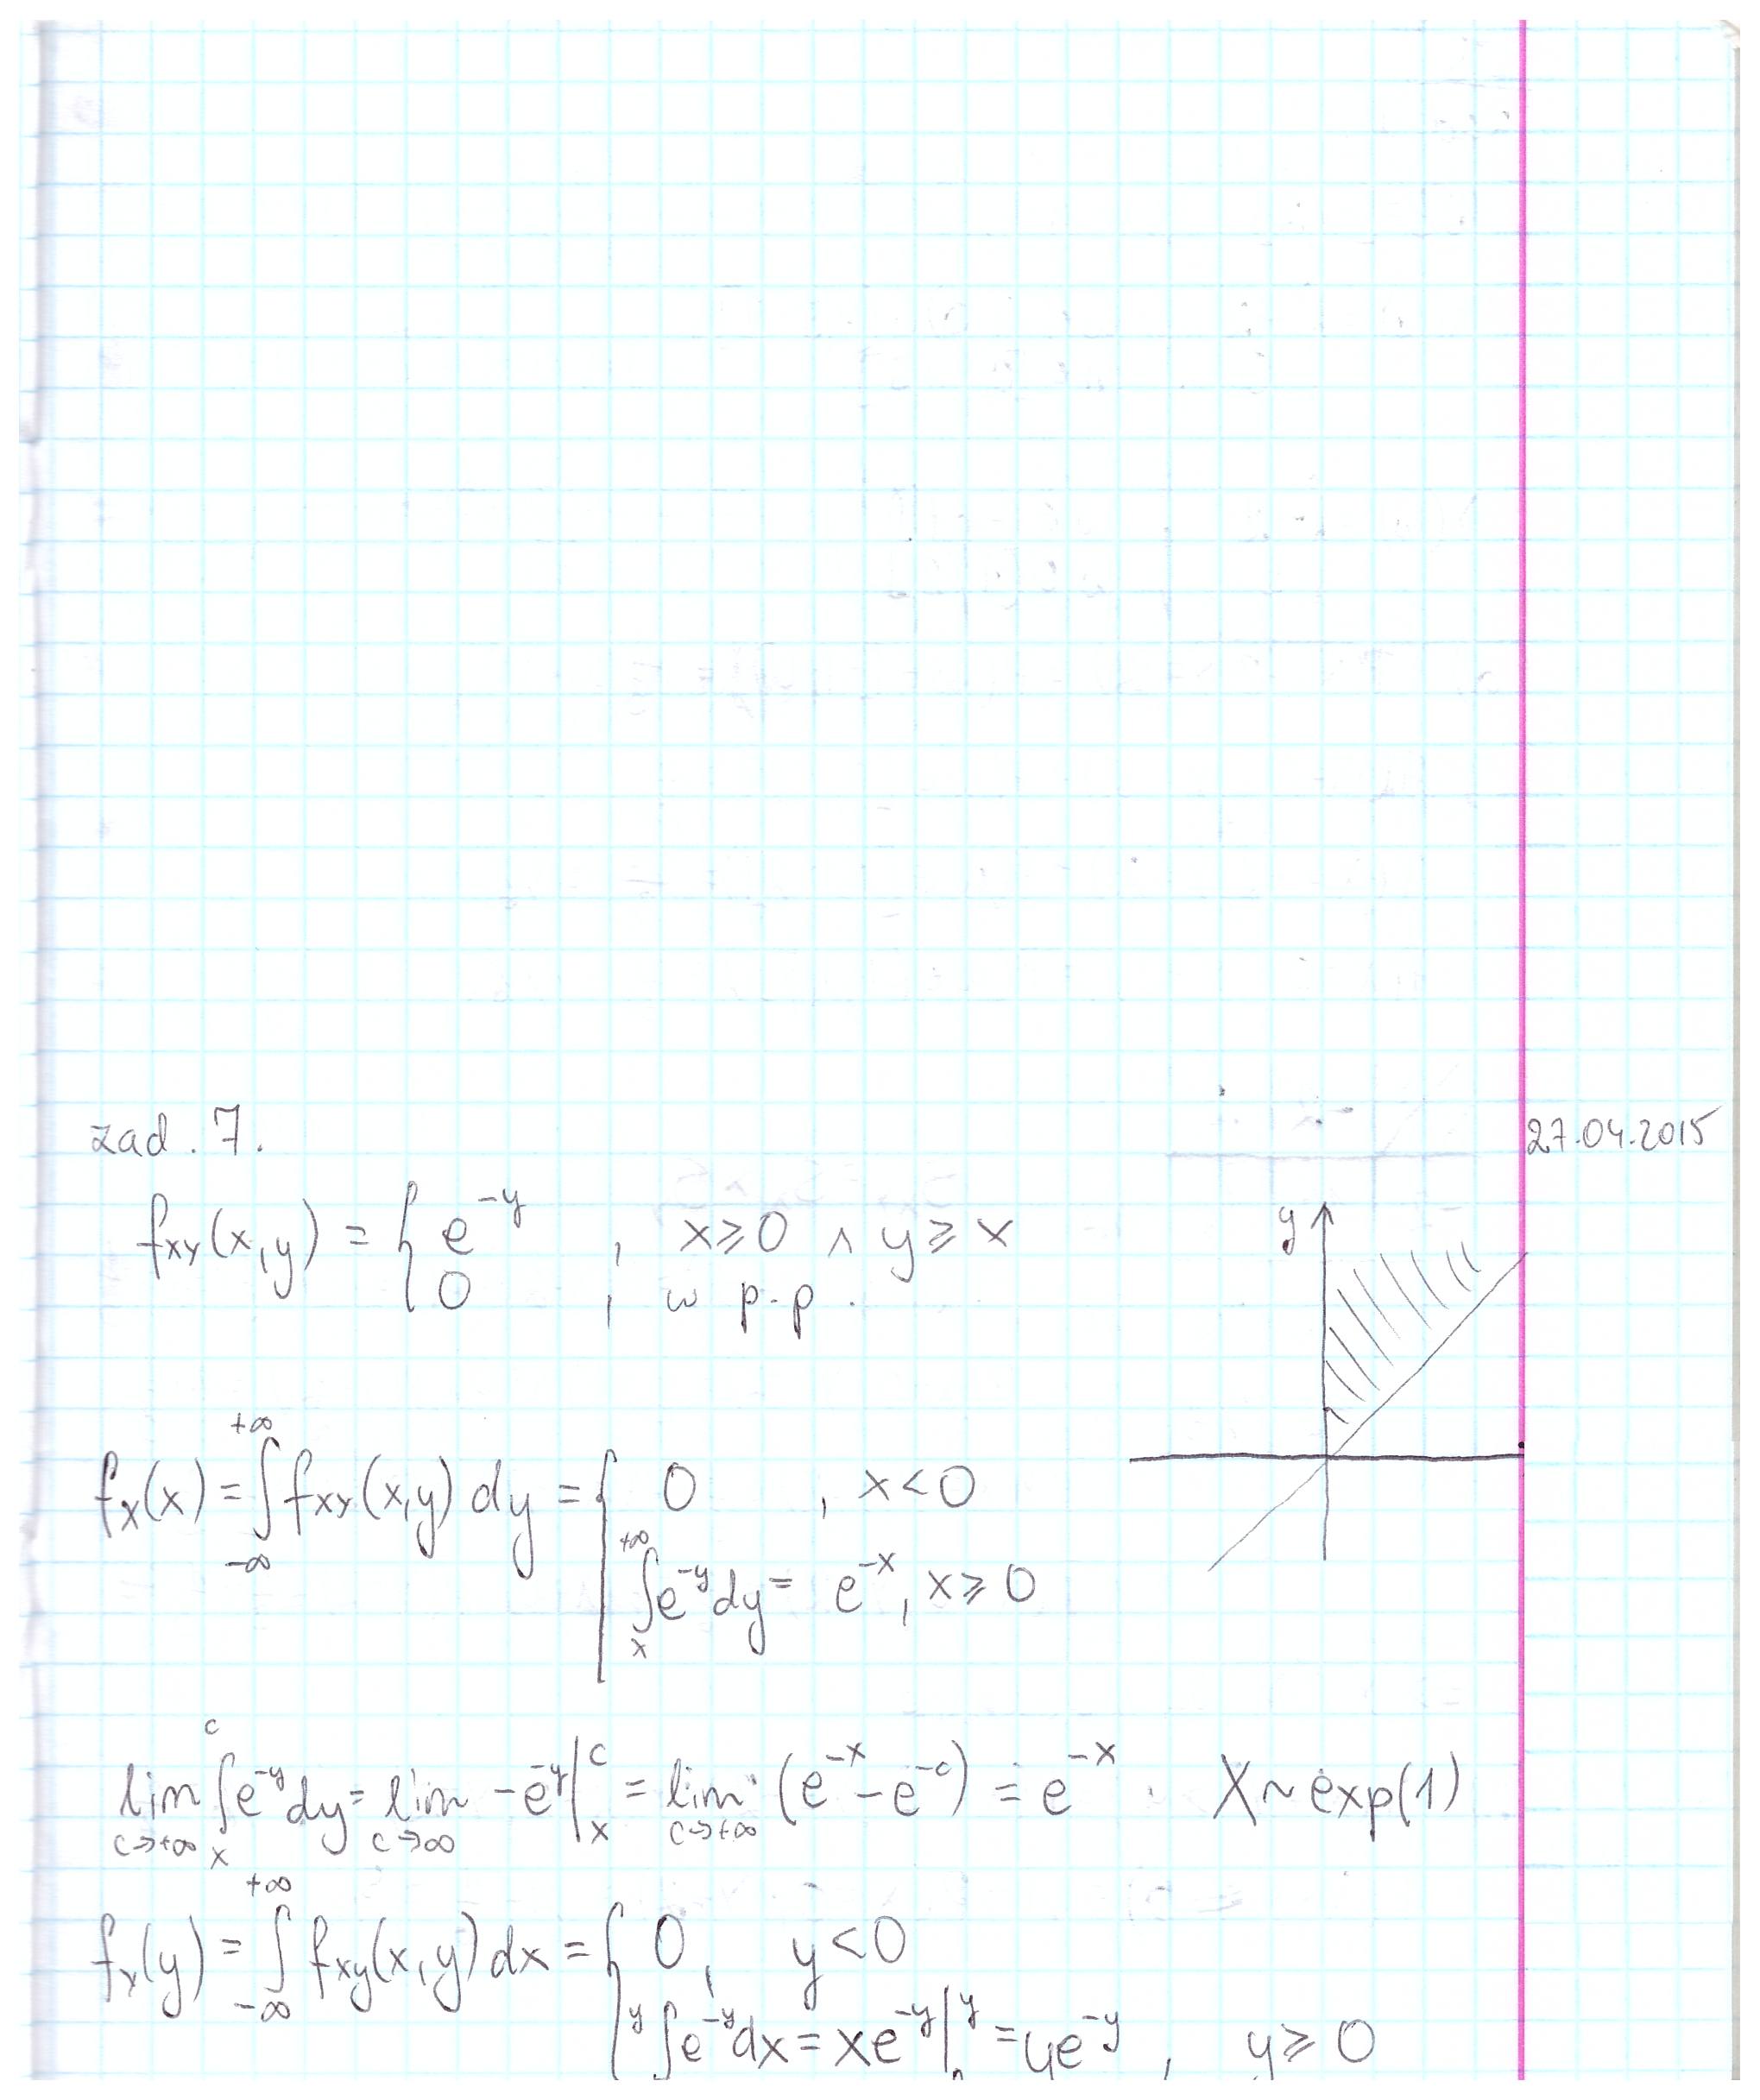 zad. 7. 27.04.2015
f_XY(x,y) = { e^{-y} , x ≥ 0 ∧ y ≥ x
0 , w p.p.
y
f_X(x) = ∫_{-∞}^{+∞} f_XY(x,y) dy = { 0 , x < 0
∫_x^{+∞} e^{-y} dy = e^{-x} , x ≥ 0
lim_{c→+∞} ∫_x^c e^{-y} dy = lim_{c→∞} -e^{-y} |_x^c = lim_{c→+∞} (e^{-x} - e^{-c}) = e^{-x} X ~ exp(1)
f_Y(y) = ∫_{-∞}^{+∞} f_XY(x,y) dx = { 0, y < 0
∫^y e^{-y} dx = x e^{-y} |^y = y e^{-y} , y ≥ 0